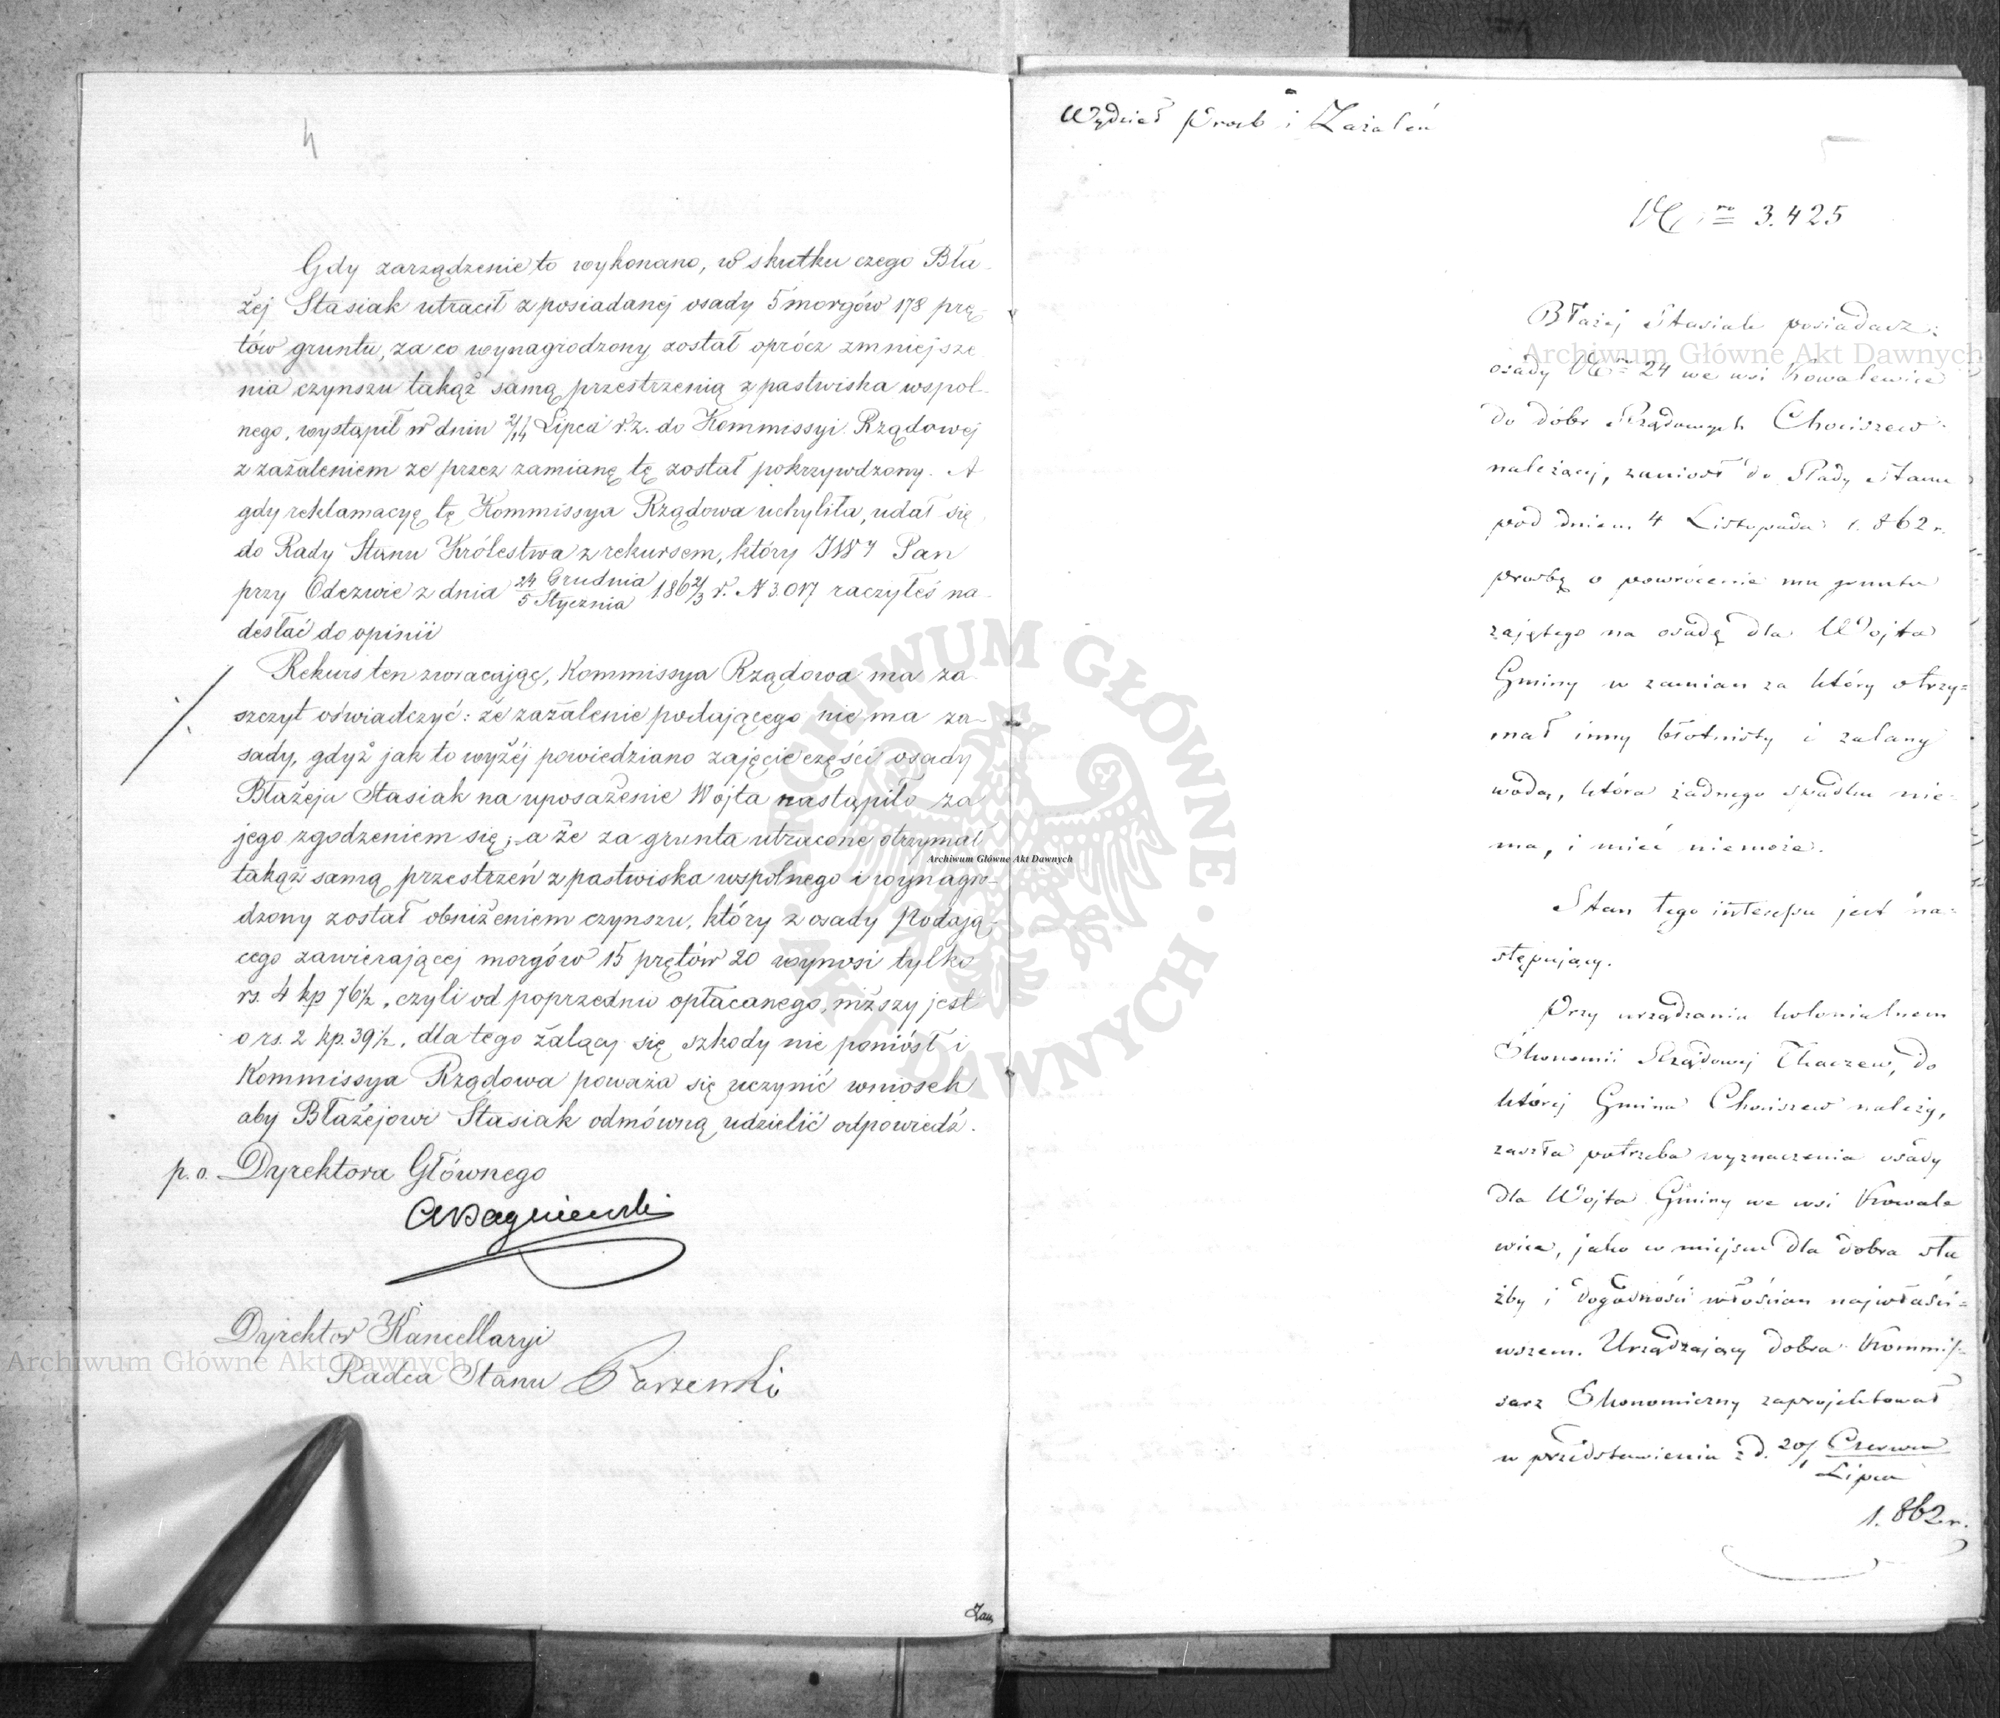 4
Gdy zarządzenie to wykonano, w skutku czego Bła-
żej Stasiak utracił z posiadanej osady 5 morgów 178 prę
tów gruntu, za co wynagrodzony został oprócz zmniejsze
nia czynszu takąż samą przestrzenią z pastwiska wspól-
nego, wystąpił w dniu 2/14 Lipca r.z. do Kommissyi Rządowej
z zażaleniem że przez zamianę tę został pokrzywdzony. A
gdy reklamacyę tę Kommissya Rządowa uchyliła, udał się
do Rady Stanu Królestwa z rekursem, który JWy Pan
przy Odezwie z dnia 24 Grudnia/5 Stycznia 1862/3 r. N 3.017 raczyłeś na-
desłać do opinii
Rekurs ten zwracając, Kommissya Rządowa ma za
szczyt oświadczyć: że zażalenie podającego nie ma za-
sady, gdyż jak to wyżéj powiedziano zajęcie części osady
Błażeja Stasiak na uposażenie Wójta nastąpiło za
jego zgodzeniem się; a że za grunta utracone otrzymał
takąż samą przestrzeń z pastwiska wspólnego i wynagro-
dzony został obniżeniem czynszu, który z osady Podają-
cego zawierającej morgów 15 prętów 20 wynosi tylko
rs. 4 kp 76½, czyli od poprzednio opłacanego, niższy jest
o rs. 2 kp. 39½, dla tego żalący się szkody nie poniósł i
Kommissya Rządowa poważa się uczynić wniosek
aby Błażejowi Stasiak odmówną udzielić odpowiedź.
p.o. Dyrektora Głównego
Dyrektor Kancellaryi
Radca Stanu
Wydział Prośb i Zażaleń
Nro 3.425
Błażej Stasiak posiadacz
osady Nro 24 we wsi Kowalewice
do dóbr Rządowych Chociszew
należącej, zaniósł do Rady Stanu
pod dniem 4 Listopada 1.862 r.
prośbę o powrócenie mu gruntu
zajętego na osadę dla Wójta
Gminy w zamian za który otrzy=
mał inny błotnisty i zalany
wodą, która żadnego spadku nie-
ma, i mieć niemoże.
Stan tego interessu jest na=
stępujący.
Przy urządzaniu kolonialnem
Ekonomii Rządowej Tkaczew, do
której Gmina Chociszew należy,
zaszła potrzeba wyznaczenia osady
dla Wójta Gminy we wsi Kowale
wice, jako w miejscu dla dobra słu
żby i dogodności włościan najwłaści=
wszem. Urządzający dobra Kommis=
sarz Ekonomiczny zaprojektował
w przedstawieniu z d. 20/1 Czerwca/Lipca
1.862 r.
Archiwum Główne Akt Dawnych
Archiwum Główne Akt Dawnych
Archiwum Główne Akt Dawnych
ARCHIWUM GŁÓWNE · AKT DAWNYCH ·